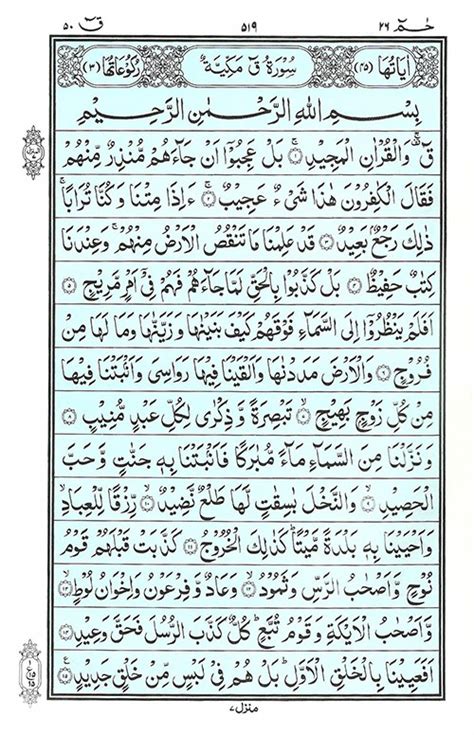 حٰمٓ ٢٦
٥١٩
قٓ ٥٠
اٰيَاتُهَا (٤٥)
سُوْرَةُ قٓ مَكِّيَّةٌ
رُكُوْعَاتُهَا (٣)
بِسْمِ اللهِ الرَّحْمٰنِ الرَّحِيْمِ
قٓ ۚ وَالْقُرْاٰنِ الْمَجِيْدِ ۝١ بَلْ عَجِبُوْۤا اَنْ جَآءَهُمْ مُّنْذِرٌ مِّنْهُمْ
فَقَالَ الْكٰفِرُوْنَ هٰذَا شَىْءٌ عَجِيْبٌ ۝٢ ءَاِذَا مِتْنَا وَكُنَّا تُرَابًا ۚ
ذٰلِكَ رَجْعٌۢ بَعِيْدٌ ۝٣ قَدْ عَلِمْنَا مَا تَنْقُصُ الْاَرْضُ مِنْهُمْ ۚ وَعِنْدَنَا
كِتٰبٌ حَفِيْظٌ ۝٤ بَلْ كَذَّبُوْا بِالْحَقِّ لَمَّا جَآءَهُمْ فَهُمْ فِىْۤ اَمْرٍ مَّرِيْجٍ ۝٥
اَفَلَمْ يَنْظُرُوْۤا اِلَى السَّمَآءِ فَوْقَهُمْ كَيْفَ بَنَيْنٰهَا وَزَيَّنّٰهَا وَمَا لَهَا مِنْ
فُرُوْجٍ ۝٦ وَالْاَرْضَ مَدَدْنٰهَا وَاَلْقَيْنَا فِيْهَا رَوَاسِىَ وَاَنْۢبَتْنَا فِيْهَا
مِنْ كُلِّ زَوْجٍۢ بَهِيْجٍ ۝٧ تَبْصِرَةً وَّذِكْرٰى لِكُلِّ عَبْدٍ مُّنِيْبٍ ۝٨
وَنَزَّلْنَا مِنَ السَّمَآءِ مَآءً مُّبٰرَكًا فَاَنْۢبَتْنَا بِهٖ جَنّٰتٍ وَّحَبَّ
الْحَصِيْدِ ۝٩ وَالنَّخْلَ بٰسِقٰتٍ لَّهَا طَلْعٌ نَّضِيْدٌ ۝١٠ رِّزْقًا لِّلْعِبَادِ ۙ
وَاَحْيَيْنَا بِهٖ بَلْدَةً مَّيْتًا ؕ كَذٰلِكَ الْخُرُوْجُ ۝١١ كَذَّبَتْ قَبْلَهُمْ قَوْمُ
نُوْحٍ وَّاَصْحٰبُ الرَّسِّ وَثَمُوْدُ ۝١٢ وَعَادٌ وَّفِرْعَوْنُ وَاِخْوَانُ لُوْطٍ ۝١٣
وَّاَصْحٰبُ الْاَيْكَةِ وَقَوْمُ تُبَّعٍ ؕ كُلٌّ كَذَّبَ الرُّسُلَ فَحَقَّ وَعِيْدِ ۝١٤
اَفَعَيِيْنَا بِالْخَلْقِ الْاَوَّلِ ؕ بَلْ هُمْ فِىْ لَبْسٍ مِّنْ خَلْقٍ جَدِيْدٍ ۝١٥
منزل ٧